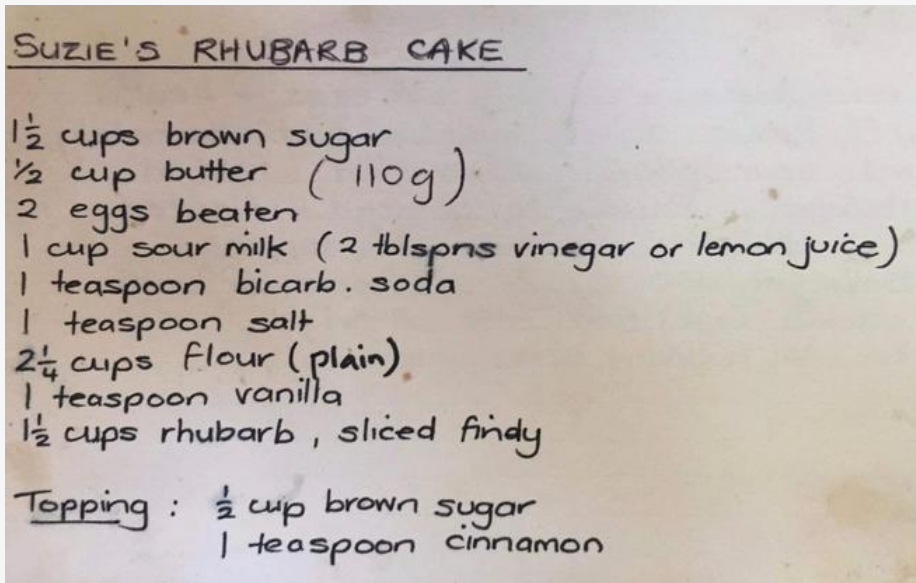 SUZIE'S RHUBARB CAKE
1½ cups brown sugar
½ cup butter (110g)
2 eggs beaten
1 cup sour milk (2 tblspns vinegar or lemon juice)
1 teaspoon bicarb. soda
1 teaspoon salt
2¼ cups flour (plain)
1 teaspoon vanilla
1½ cups rhubarb, sliced finely
Topping: ½ cup brown sugar
1 teaspoon cinnamon